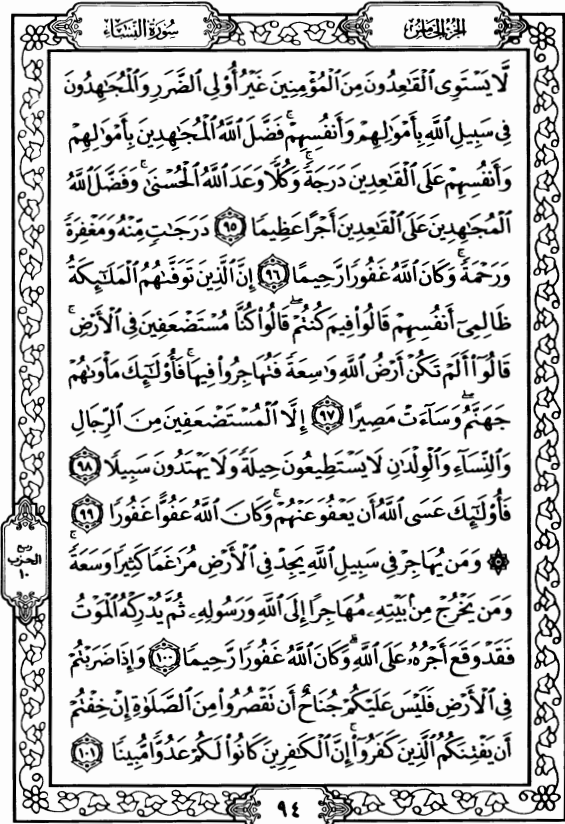 الجزء الخامس
سورة النساء
لَّا يَسْتَوِى ٱلْقَٰعِدُونَ مِنَ ٱلْمُؤْمِنِينَ غَيْرُ أُو۟لِى ٱلضَّرَرِ وَٱلْمُجَٰهِدُونَ
فِى سَبِيلِ ٱللَّهِ بِأَمْوَٰلِهِمْ وَأَنفُسِهِمْ ۚ فَضَّلَ ٱللَّهُ ٱلْمُجَٰهِدِينَ بِأَمْوَٰلِهِمْ
وَأَنفُسِهِمْ عَلَى ٱلْقَٰعِدِينَ دَرَجَةً ۚ وَكُلًّا وَعَدَ ٱللَّهُ ٱلْحُسْنَىٰ ۚ وَفَضَّلَ ٱللَّهُ
ٱلْمُجَٰهِدِينَ عَلَى ٱلْقَٰعِدِينَ أَجْرًا عَظِيمًا ٩٥ دَرَجَٰتٍ مِّنْهُ وَمَغْفِرَةً
وَرَحْمَةً ۚ وَكَانَ ٱللَّهُ غَفُورًا رَّحِيمًا ٩٦ إِنَّ ٱلَّذِينَ تَوَفَّىٰهُمُ ٱلْمَلَٰٓئِكَةُ
ظَالِمِىٓ أَنفُسِهِمْ قَالُوا۟ فِيمَ كُنتُمْ ۖ قَالُوا۟ كُنَّا مُسْتَضْعَفِينَ فِى ٱلْأَرْضِ ۚ
قَالُوٓا۟ أَلَمْ تَكُنْ أَرْضُ ٱللَّهِ وَٰسِعَةً فَتُهَاجِرُوا۟ فِيهَا ۚ فَأُو۟لَٰٓئِكَ مَأْوَىٰهُمْ
جَهَنَّمُ ۖ وَسَآءَتْ مَصِيرًا ٩٧ إِلَّا ٱلْمُسْتَضْعَفِينَ مِنَ ٱلرِّجَالِ
وَٱلنِّسَآءِ وَٱلْوِلْدَٰنِ لَا يَسْتَطِيعُونَ حِيلَةً وَلَا يَهْتَدُونَ سَبِيلًا ٩٨
فَأُو۟لَٰٓئِكَ عَسَى ٱللَّهُ أَن يَعْفُوَ عَنْهُمْ ۚ وَكَانَ ٱللَّهُ عَفُوًّا غَفُورًا ٩٩
۞ وَمَن يُهَاجِرْ فِى سَبِيلِ ٱللَّهِ يَجِدْ فِى ٱلْأَرْضِ مُرَٰغَمًا كَثِيرًا وَسَعَةً ۚ
ربع
الحزب
١٠
وَمَن يَخْرُجْ مِنۢ بَيْتِهِۦ مُهَاجِرًا إِلَى ٱللَّهِ وَرَسُولِهِۦ ثُمَّ يُدْرِكْهُ ٱلْمَوْتُ
فَقَدْ وَقَعَ أَجْرُهُۥ عَلَى ٱللَّهِ ۗ وَكَانَ ٱللَّهُ غَفُورًا رَّحِيمًا ١٠٠ وَإِذَا ضَرَبْتُمْ
فِى ٱلْأَرْضِ فَلَيْسَ عَلَيْكُمْ جُنَاحٌ أَن تَقْصُرُوا۟ مِنَ ٱلصَّلَوٰةِ إِنْ خِفْتُمْ
أَن يَفْتِنَكُمُ ٱلَّذِينَ كَفَرُوٓا۟ ۚ إِنَّ ٱلْكَٰفِرِينَ كَانُوا۟ لَكُمْ عَدُوًّا مُّبِينًا ١٠١
٩٤